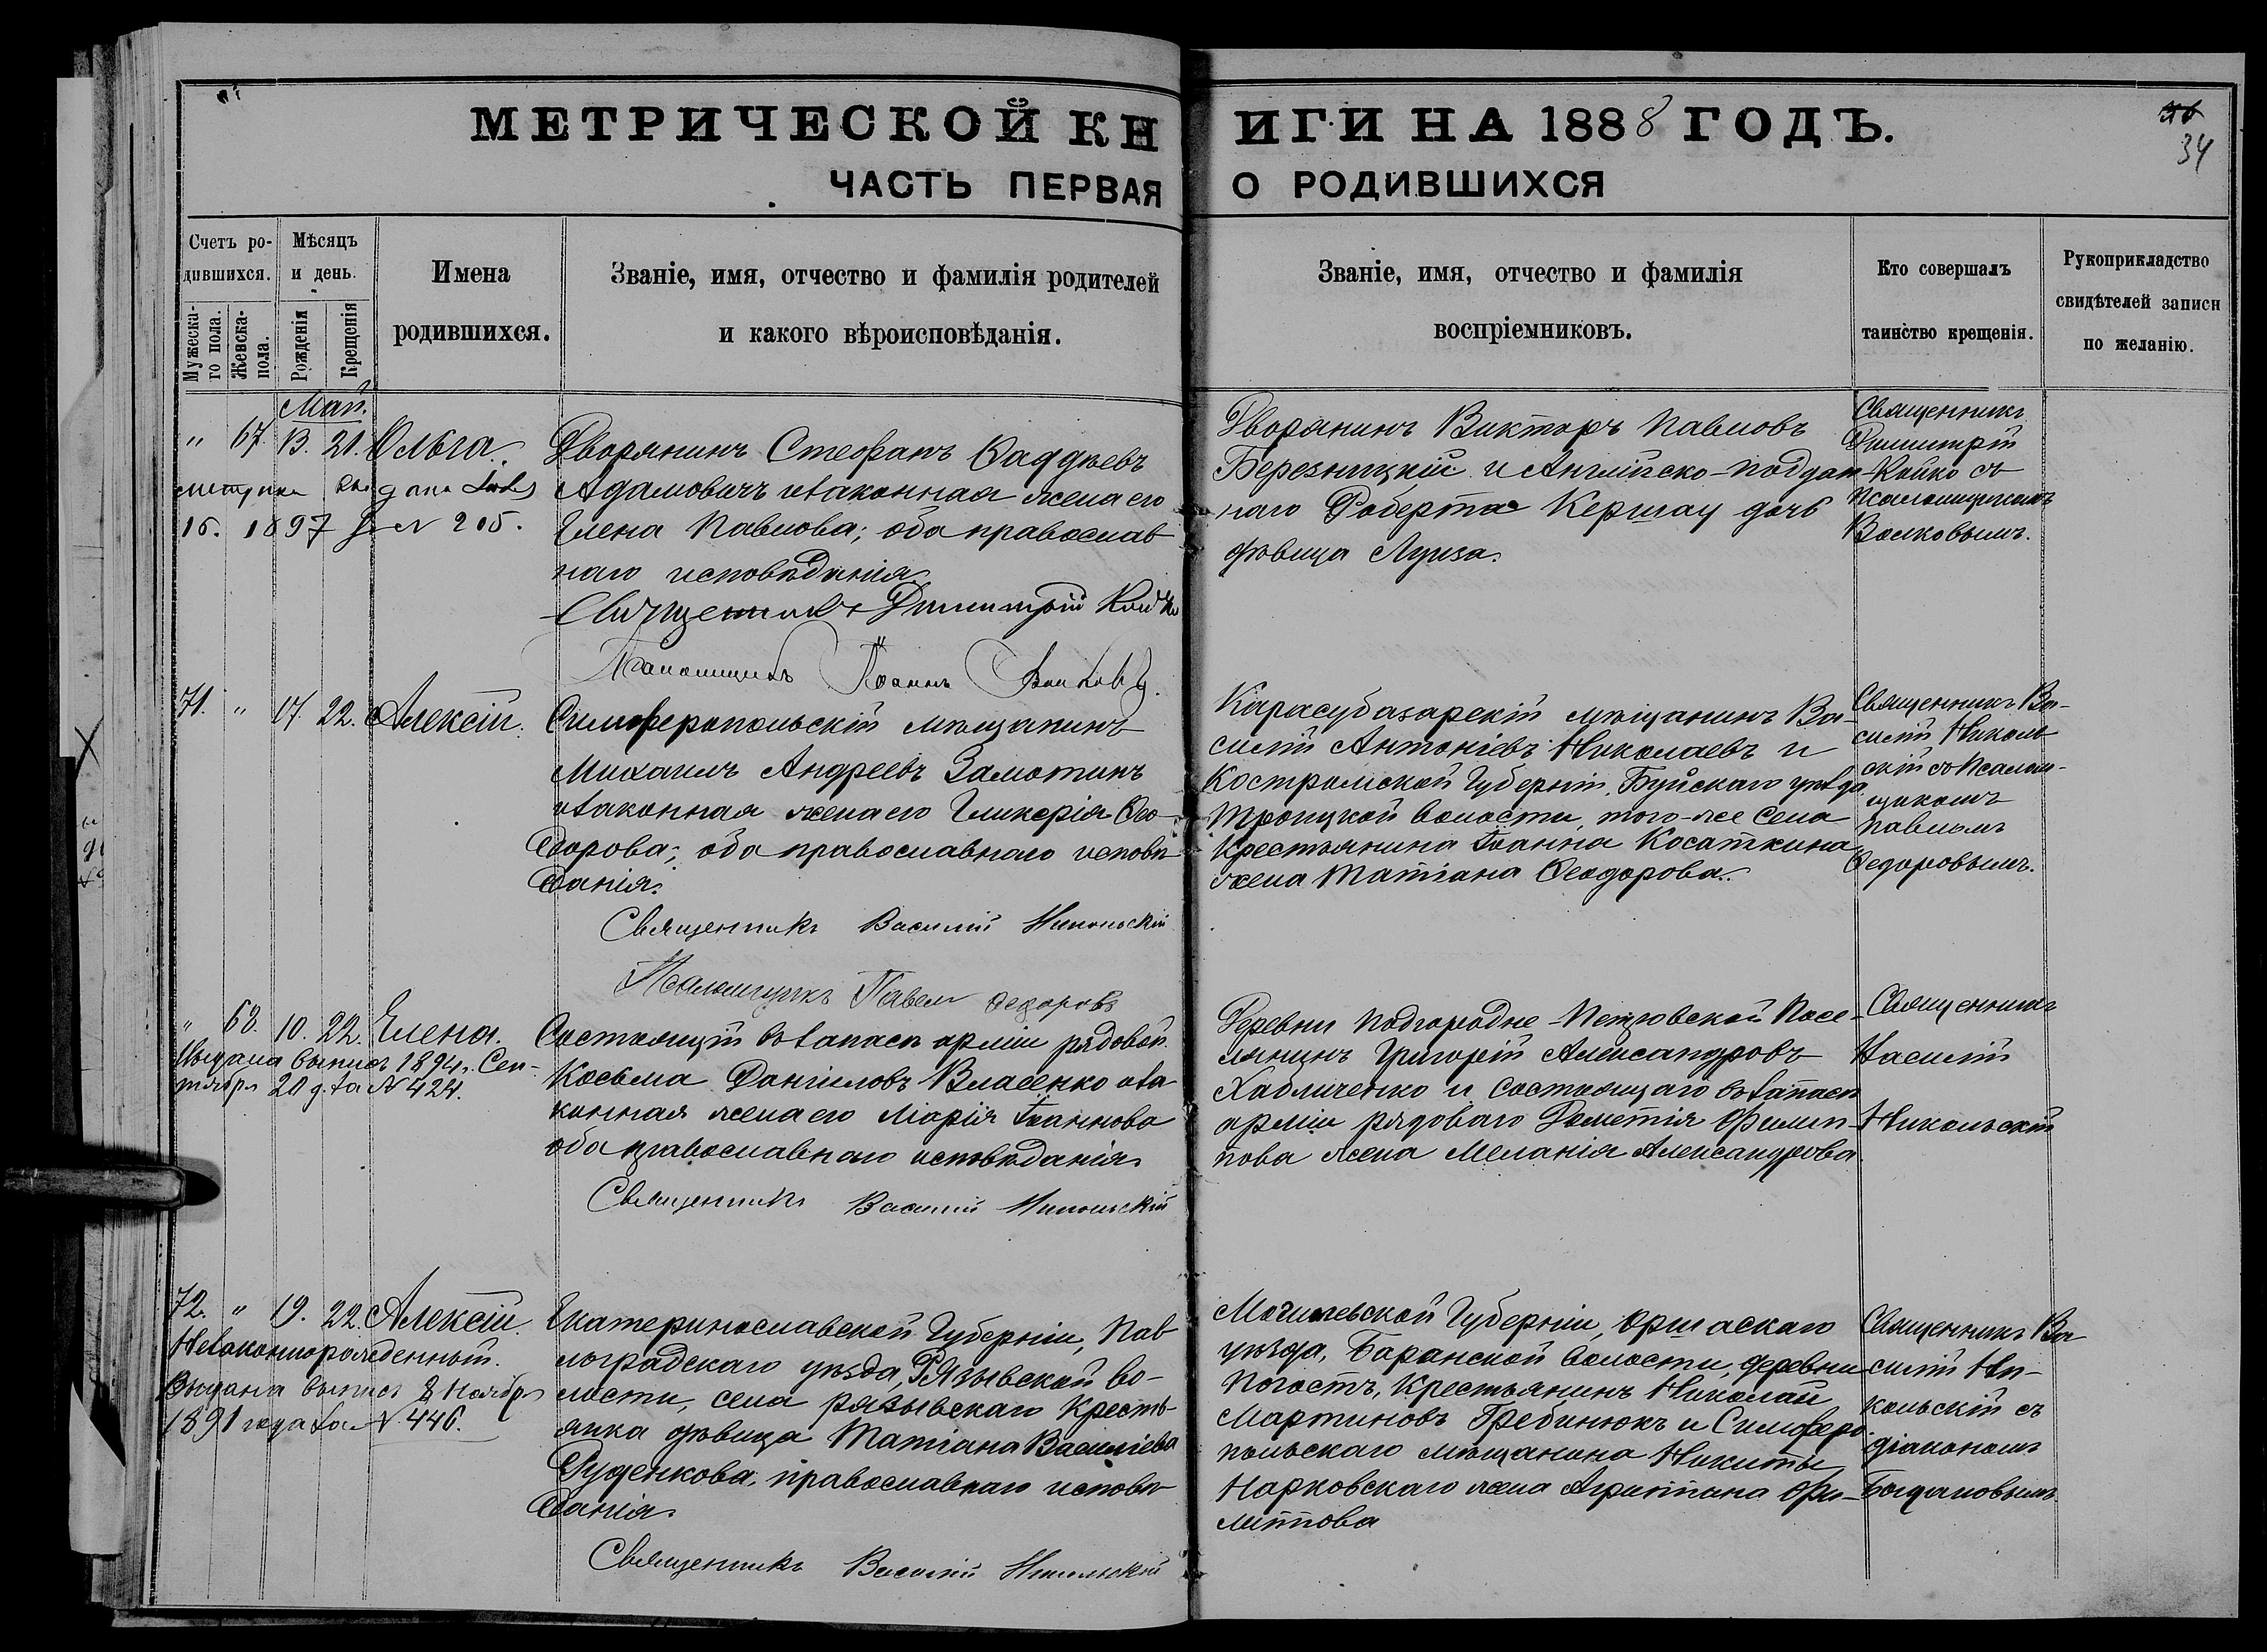 МЕТРИЧЕСКОЙ КНИГИ НА 1888 ГОДЪ.
34
ЧАСТЬ ПЕРВАЯ О РОДИВШИХСЯ
Счетъ родившихся.
Мужеска-го пола.
Женска-пола.
Мѣсяцъ и день.
Рожденія
Крещенія
Имена
родившихся.
Званіе, имя, отчество и фамилія родителей
и какого вѣроисповѣданія.
Званіе, имя, отчество и фамилія
воспріемниковъ.
Кто совершалъ
таинство крещенія.
Рукоприкладство
свидѣтелей записи
по желанію.
Май.
" 67. 13. 21. Ольга.
метрика
16. 1897 г № 205.
Дворянинъ Стефанъ Фаддѣевъ
Адамовичъ и законная жена его
Елена Павлова; оба православ
наго исповѣданія.
Священникъ Димитрій Койко
Псаломщикъ Іоаннъ Волковъ.
Дворянинъ Викторъ Павловъ
Березницкій и Англійско-поддан
наго Роберта Кершау дочь
дѣвица Луиза.
Священникъ
Димитрій
Койко съ
Псаломщикомъ
Волковымъ.
71. " 17. 22. Алексій.
Симферопольскій мѣщанинъ
Михаилъ Андреевъ Замотинъ
и законная жена его Гликерія Ѳео-
дорова; оба православнаго исповѣ
данія.
Священникъ Василій Никольскій
Псаломщикъ Павелъ Ѳедоровъ
Карасубазарскій мѣщанинъ Ва-
силій Антоніевъ Николаевъ и
Костромской Губерніи, Буйскаго уѣзда
Троицкой волости, того-же села
Крестьянина Іоанна Косаткина
жена Татіана Ѳеодорова.
Священникъ Ва-
силій Николь
скій съ Псалом-
щикомъ
Павломъ
Ѳедоровымъ.
" 68. 10. 22. Елена.
Выдана выпись 1894 г. Сен-
тября 20 д. за № 424.
Состоящій въ запасѣ арміи рядовой
Косьма Даніиловъ Власенко и за
конная жена его Марія Іоаннова
оба православнаго исповѣданія
Священникъ Василій Никольскій
Деревни Подгородне-Петровской Посе-
лянинъ Григорій Александровъ
Хабличенко и состоящаго въ запасѣ
арміи рядоваго Дометія Филип-
пова жена Меланія Александрова
Священникъ
Василій
Никольскій
72. " 19. 22. Алексій.
Незаконнорожденный.
Выдана выпись 8 Ноября
1891 года за № 446.
Екатеринославской Губерніи, Пав
лоградскаго уѣзда, Рязывской во-
лости, села рязывскаго Кресть-
янка дѣвица Татіана Василіева
Руденкова, православнаго исповѣ
данія.
Священникъ Василій Никольскій
Могилевской Губерніи, Оршаскаго
уѣзда, Баранской волости, деревни
Погостъ, Крестьянинъ Николай
Мартиновъ Гребинюкъ и Симферо-
польскаго мѣщанина Никиты
Нарковскаго жена Агриппина Фи-
липпова
Священникъ Ва
силій Ни-
кольскій съ
діакономъ
Богдановымъ